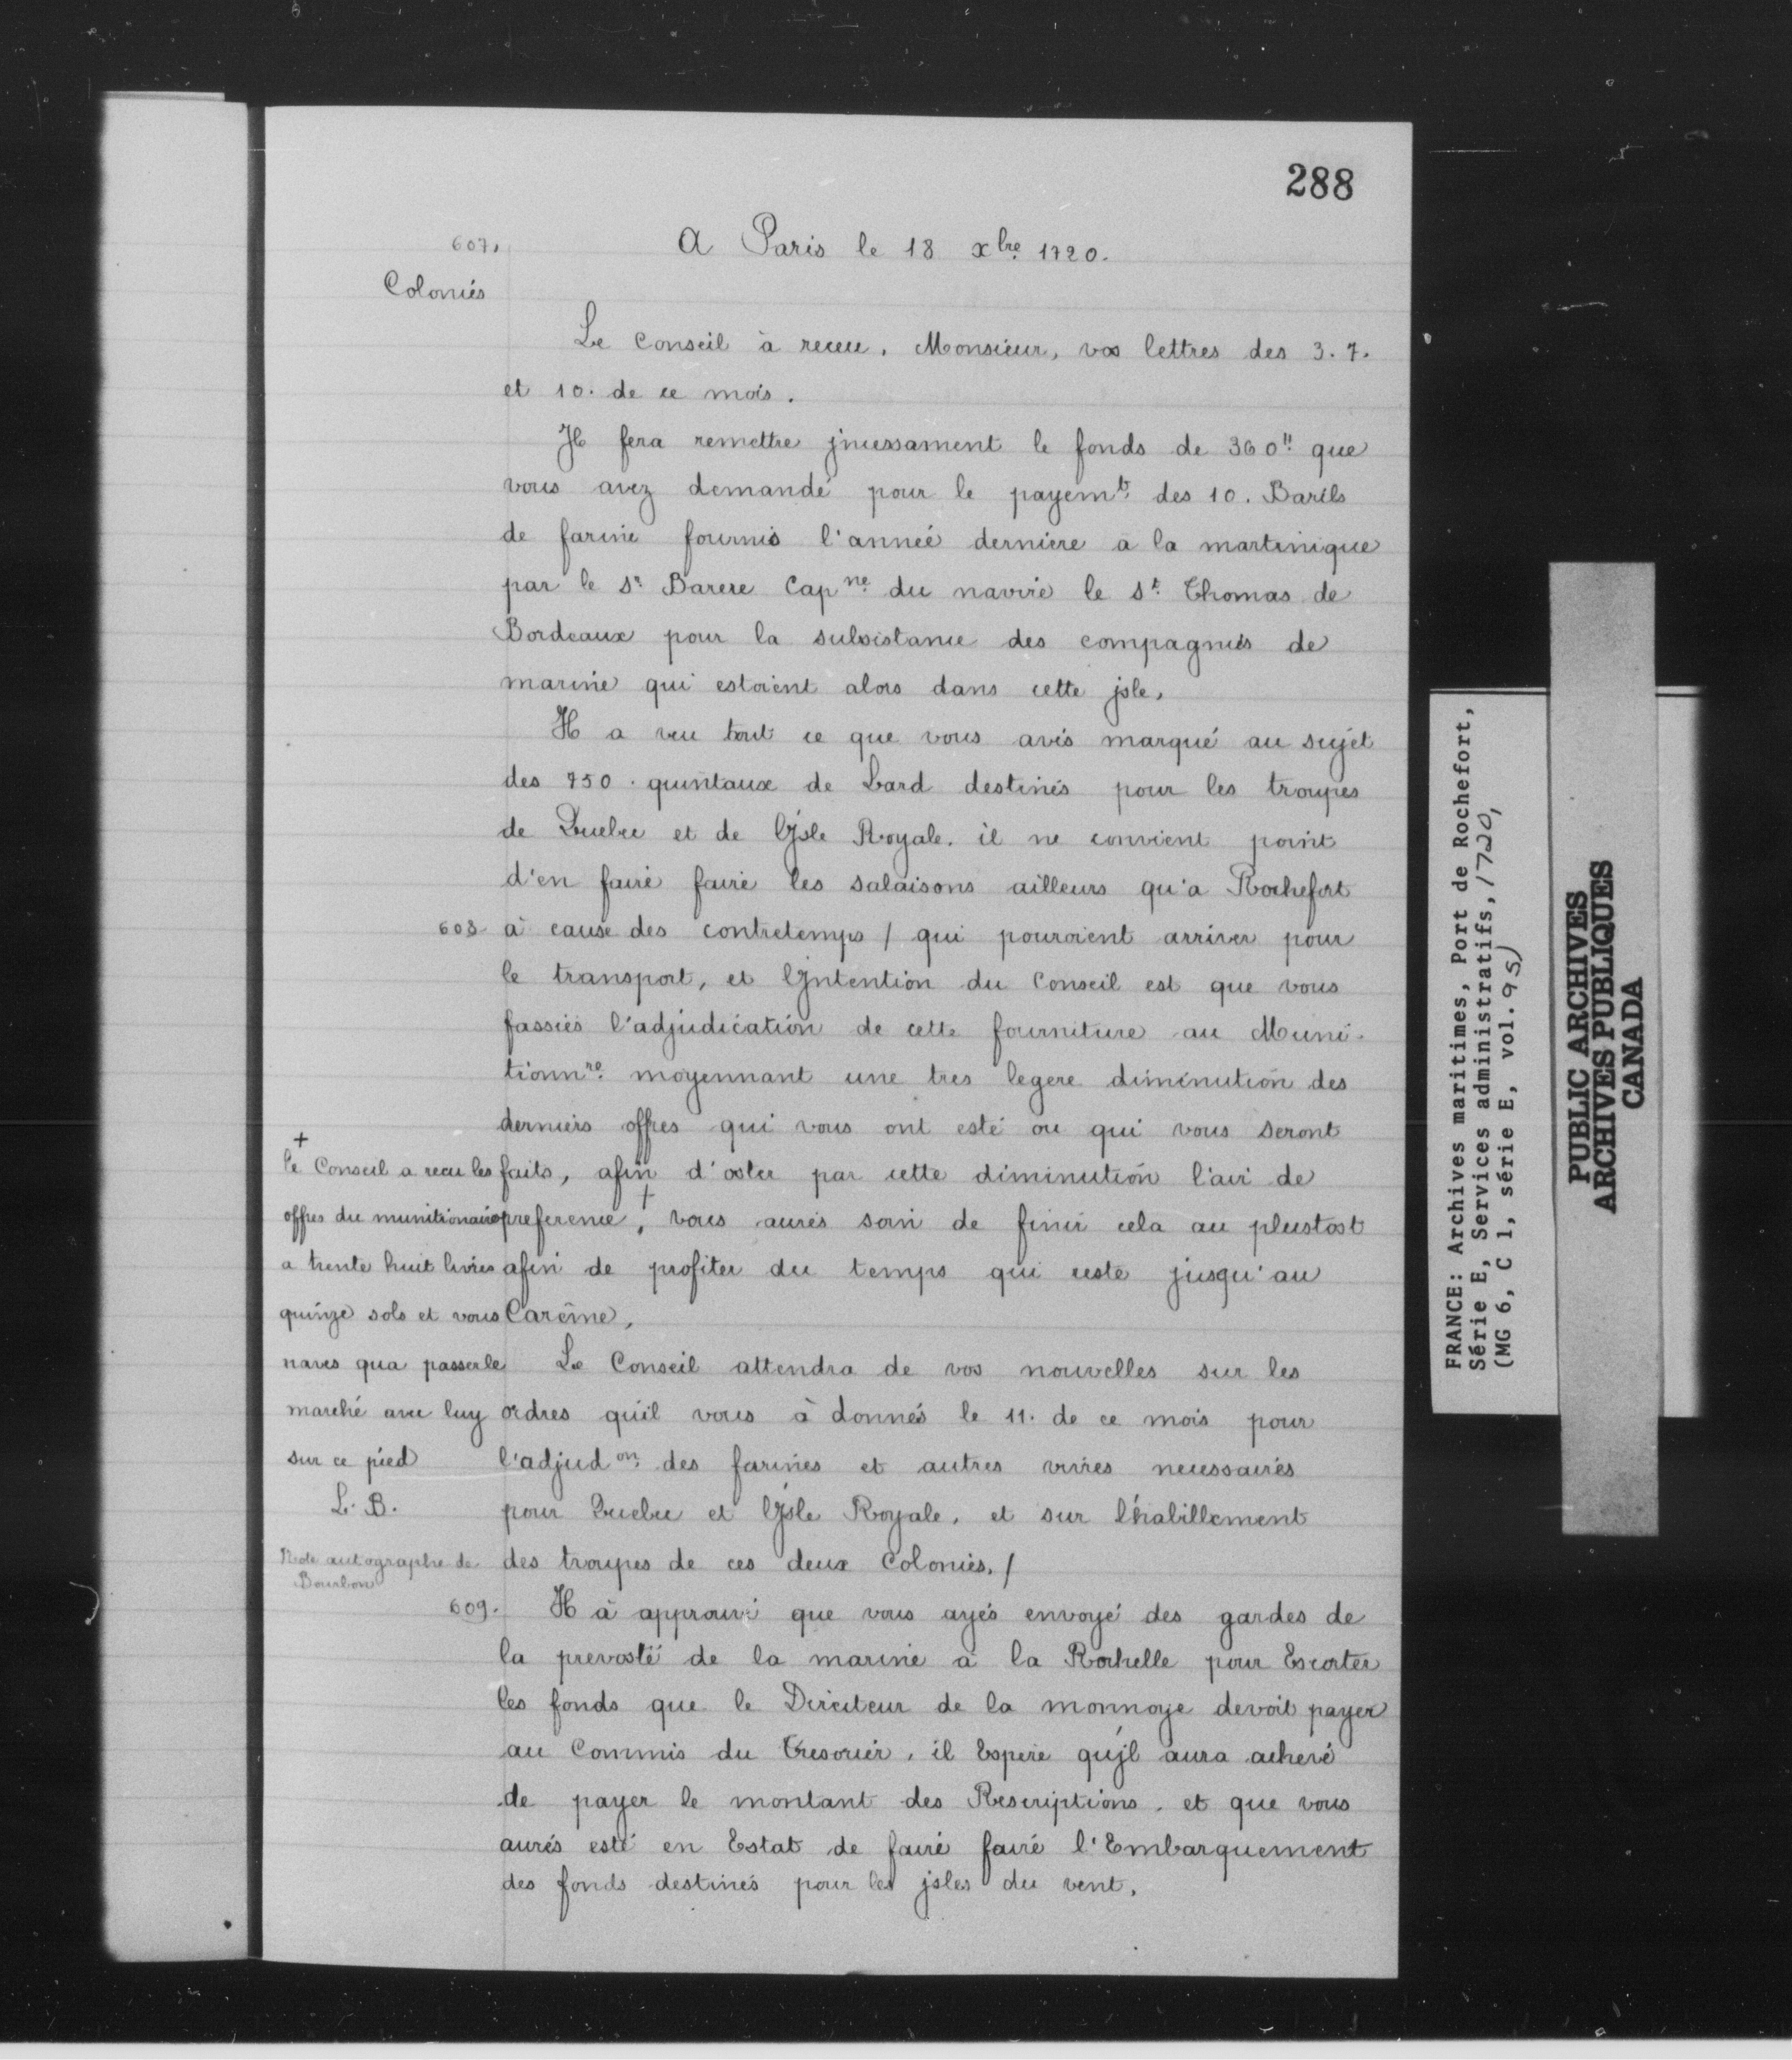 288
607.
A Paris le 18 xbre 1720.
Coloniés
Le Conseil à receu, Monsieur, vos lettres des 3. 7.
et 10. de ce mois.
Il fera remettre jncessament le fonds de 360ᴴ que
vous avez demandé pour le payemt des 10. Barils
de farine fournis l'année derniere a la martinique
par le Sr Barere Capne du navire le St Thomas de
Bordeaux pour la subsistance des compagnies de
marine qui estoient alors dans cette jsle,
Il a veu tout ce que vous avés marqué au sujet
des 750. quintaux de Lard destinés pour les troupes
de Quebec et de l'Jsle Royale. il ne convient point
d'en faire faire les salaisons ailleurs qu'a Rochefort
608 à cause des contretemps / qui pouroient arriver pour
le transport, et l'Jntention du Conseil est que vous
fassiés l'adjudication de cette fourniture au Muni-
tionnre moyennant une tres legere diminution des
derniers offres qui vous ont esté ou qui vous seront
faits, afin d'oster par cette diminution l'air de
preference, + vous aurés soin de finir cela au plustost
afin de profiter du temps qui reste jusqu'au
Carême,
+
le Conseil a receu les
offres du munitionaire
a trente huit livres
quinze sols et vous
navés qua passer le
marché avec luy
sur ce pied
L. B.
Note autographe de
Bourbon
Le Conseil attendra de vos nouvelles sur les
ordres qu'il vous à donnés le 11. de ce mois pour
l'adjudon des farines et autres vivres necessaires
pour Quebec et l'Jsle Royale, et sur l'habillement
des troupes de ces deux Colonies. /
609. Il à approuvé que vous ayés envoyé des gardes de
la prevosté de la marine a la Rochelle pour Escorter
les fonds que le Directeur de la monnoye devoit payer
au Commis du Tresorier, il Espere qu'jl aura achevé
de payer le montant des Rescriptions, et que vous
aurés esté en Estat de faire faire l'Embarquement
des fonds destinés pour les jsles du vent,
FRANCE: Archives maritimes, Port de Rochefort,
Série E, Services administratifs, 1720,
(MG 6, C 1, série E, vol. 95)
PUBLIC ARCHIVES
ARCHIVES PUBLIQUES
CANADA